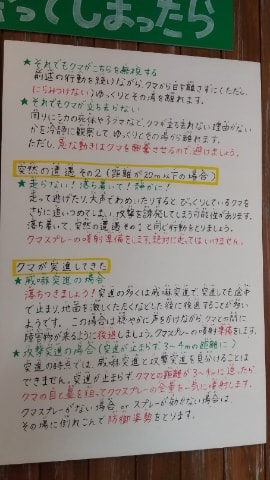 会ってしまったら
★それでもクマがこちらを無視する
前述の行動を続けながら、クマから目を離さずに(ただし、
にらみつけない)ゆっくりとその場を離れます。
★それでもクマが立ち去らない
周りにシカの死体や子グマなど、クマが立ち去れない理由がない
かを冷静に観察して ゆっくりとその場から離れます。
ただし、急な動きはクマを興奮させるので、避けましょう。
突然の遭遇 その2(距離が20m以下の場合)
★走らない!落ち着いて!静かに!
走って逃げたり大声でわめいたりすると、びっくりしているクマを
さらに追いつめてしまい、攻撃を誘発してしまう可能性があります。
落ち着いて、突然の遭遇 その1と同じ行動をとりましょう。
クマスプレーの噴射準備をします。絶対に走ってはいけません。
クマが突進してきた
★威嚇突進の場合
落ちつきましょう!突進の多くは威嚇突進で、突進しても途中
で止まり、地面を激しくたたくなどした後に後退することが多い
ようです。この場合は穏やかに声をかけながらクマとの間に
障害物が来るように後退しましょう。クマスプレーの噴射準備をします。
★攻撃突進の場合(突進が止まらず3〜4mの距離に)
突進の時点では、威嚇突進と攻撃突進を見分けることは
できません。突進が止まらず、クマとの距離が3〜4mに迫ったら、
クマの目と鼻を狙ってクマスプレーの全量を一気に噴射します。
クマスプレーがない場合 or スプレーが効かない場合は、
その場に倒れこんで防御姿勢をとります。